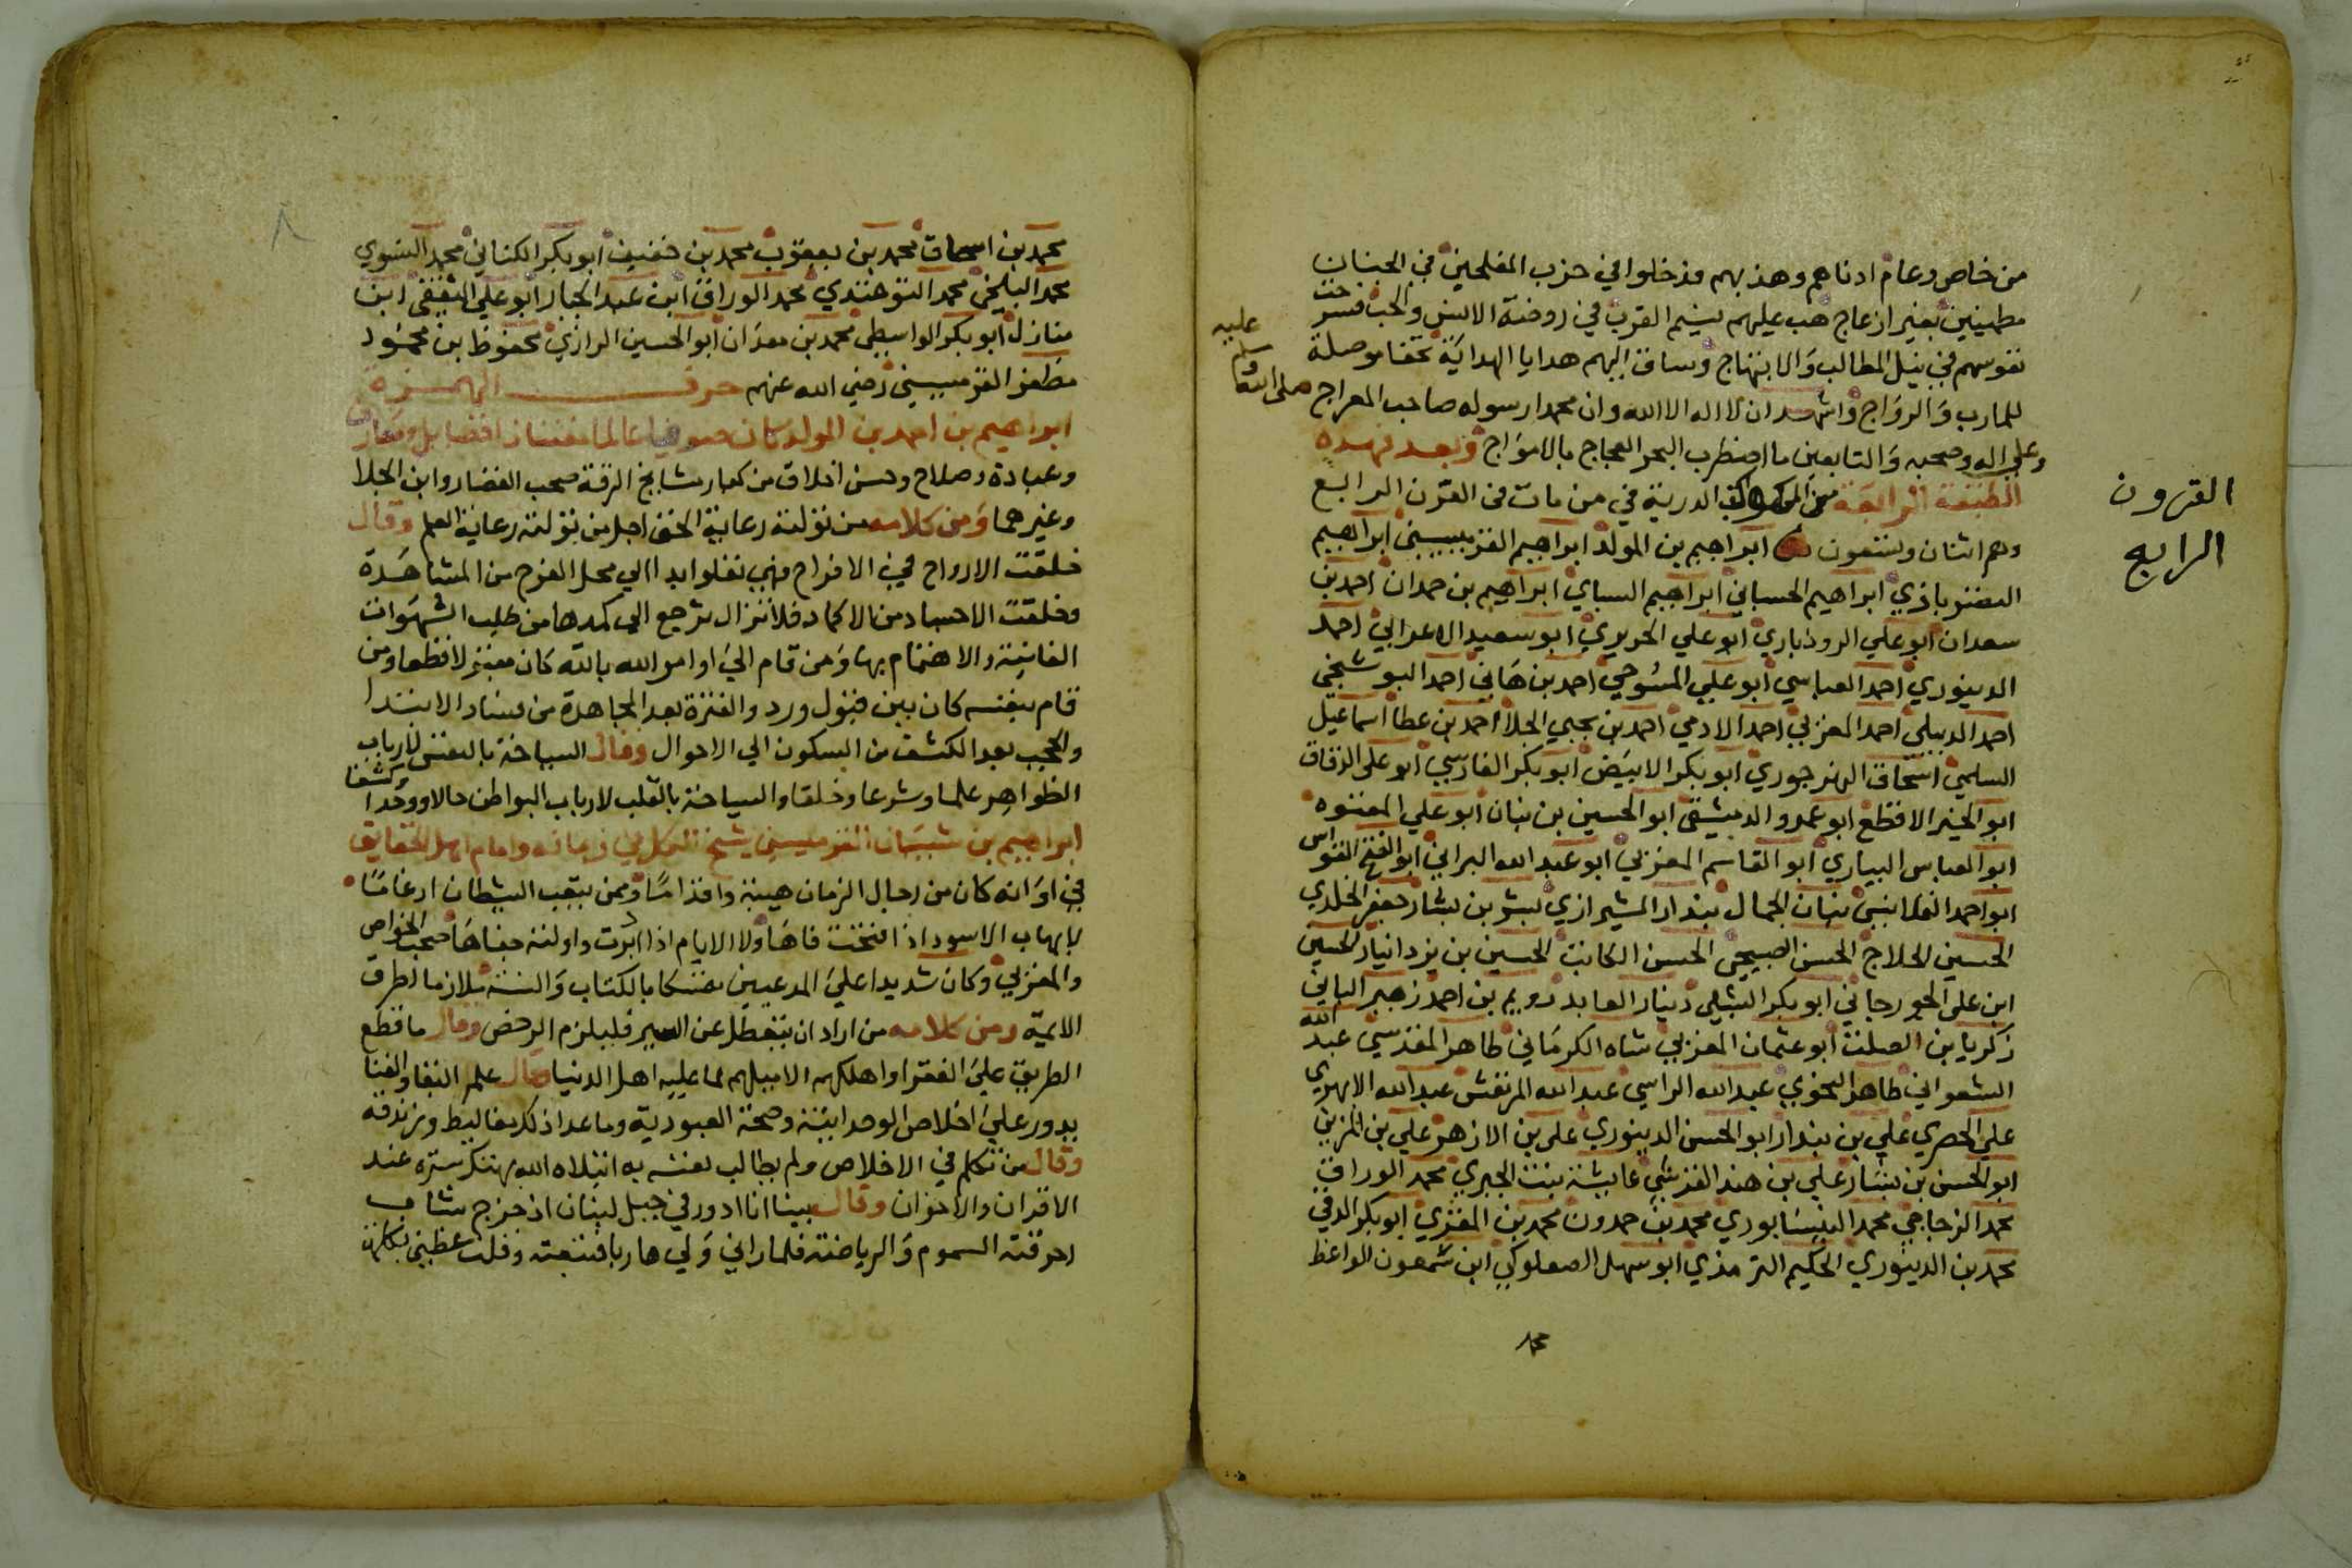 من خاص وعام ادناهم وهذبهم فدخلوا في حزب المفلحين في الجنان
مطمينين بغير ازعاج هب عليهم نسيم القرب في روضة الانس والحب فسرحت
نفوسهم في نيل المطالب والابتهاج وساق اليهم هدايا الهداية تحفا موصلة
للمارب والرواج واشهد ان لا اله الا الله وان محمدا رسوله صاحب المعراج صلى الله عليه وسلم
وعلي اله وصحبه والتابعين ما اضطرب البحر العجاج بالامواج وبعد فهذه
الطبقة الرابعة من الكواكب الدرية في من مات في القرن الرابع
القرون
الرابع
وهم اثنان وتسعون ابراهيم بن المولد ابراهيم القرميسيني ابراهيم
النصرباذي ابراهيم الحسباني ابراهيم السباي ابراهيم بن حمدان احمد بن
سعدان ابو علي الروذباري ابو علي الحريري ابو سعيد الاعرابي احمد
الدينوري احمد العباسي ابو علي المسوحي احمد بن هاني احمد البوشنجي
احمد الديبلي احمد المغربي احمد الادمي احمد بن يحيي الجلا احمد بن عطا اسماعيل
السلمي اسحاق النهرجوري ابو بكر الابيض ابو بكر الفارسي ابو علي الدقاق
ابو الخير الاقطع ابو عمرو الدمشقي ابو الحسين بن بنان ابو علي المعتوه
ابو العباس السياري ابو القاسم المغربي ابو عبد الله البراني ابو الفتح القواس
ابو احمد القلانسي بنان الجمال بندار الشيرازي بشر بن بشار جعفر الخلدي
الحسين الحلاج الحسن الصبيحي الحسن الكاتب الحسين بن يزدانيار الحسين
ابن علي الجورجاني ابو بكر الشبلي دينار العابد رويم بن احمد زهير البابي
زكريا بن الصلت ابو عثمان المغربي شاه الكرماني طاهر المقدسي عبد الله
الشعراني طاهر النحوي عبد الله الراسي عبد الله المرتعش عبد الله الابهري
علي الحصري علي بن بندار ابو الحسن الدينوري علي بن الازهر علي بن المزين
ابو الحسن بن بشار علي بن هند القرشي عايشة بنت الحيري محمد الوراق
محمد الزجاجي محمد النيسابوري محمد بن حمدون محمد بن المقري ابو بكر الدقي
محمد بن الدينوري الحكيم الترمذي ابو سهل الصعلوكي ابن شمعون الواعظ
محمد
محمد بن اسحاق محمد بن يعقوب محمد بن خفيف ابو بكر الكتاني محمد النسوي
محمد البلخي محمد التوخندي محمد الوراق ابن عبد الجبار ابو علي الثقفي ابن
منازل ابو بكر الواسطي محمد بن معدان ابو الحسين الرازي محفوظ بن محمود
مظفر القرميسيني رضي الله عنهم حرف الهمزة
ابراهيم بن احمد بن المولد كان صوفيا عالما مفننا ذا فضايل ومعارف
وعبادة وصلاح وحسن اخلاق من كبار مشايخ الرقة صحب القصار وابن الجلا
وغيرهما ومن كلامه من تولته رعاية الحق اجل من تولته رعاية العلم وقال
خلقت الارواح في الافراح فهي تعلوا ابدا الي محل الفرح من المشاهدة
وخلقت الاجساد من الاكماد فلا تزال ترجع الي كمدها من طلب الشهوات
الفانية والاهتمام بها ومن قام الي اوامر الله بالله كان مقبولا قطعا ومن
قام بنفسه كان بين قبول ورد والفترة بعد المجاهدة من فساد الابتدا
والحجب بعد الكشف من السكون الي الاحوال وقال السياحة بالنفس لارباب
الظواهر علما وشرعا وخلقا والسياحة بالقلب لارباب البواطن حالا ووجدا وكشفا
ابراهيم بن شيبان القرميسيني شيخ الجبل في زمانه وامام اهل الحقايق
في اوانه كان من رجال الزمان هيبة واقداما وممن يتعب الشيطان ارغاما
لا يهاب الاسود اذا فتحت فاها ولا الايام اذا ادبرت واولته جفاها صحب الخواص
والمغربي وكان شديدا علي المدعيين متمسكا بالكتاب والسنة ملازما لطرق
الايمة ومن كلامه من اراد ان يتعطل عن السير فليلزم الرخص وقال ما قطع
الطريق علي الفقرا واهلكهم الا ميلهم لما عليه اهل الدنيا وقال علم البقا والفنا
يدور علي اخلاص الوحدانية وصحة العبودية وما عدا ذلك مغاليط وزندقة
وقال من تكلم في الاخلاص ولم يطالب نفسه به ابتلاه الله بهتك ستره عند
الاقران والاخوان وقال بينا انا ادور في جبل لبنان اذ خرج شاب
احرقته السموم والرياضة فلما راني ولي هاربا فتبعته وقلت عظني بكلمة